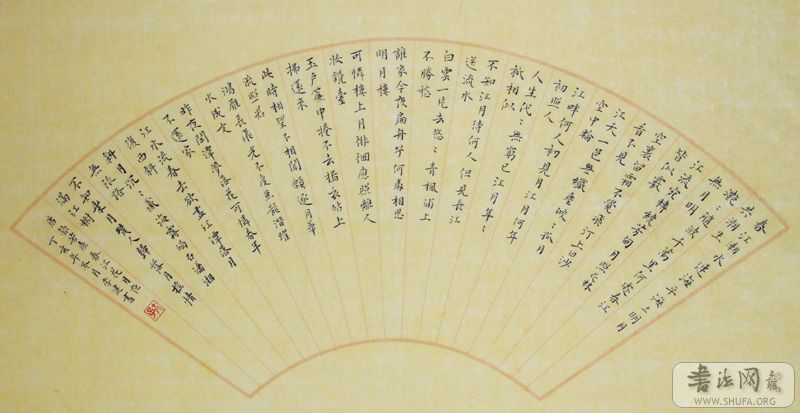 春江潮水連海平海上明月
共潮生
灩灩隨波千萬里何處春江
無月明
江流宛轉繞芳甸月照花林
皆似霰
空裏流霜不覺飛汀上白沙
看不見
江天一色無纖塵皎〻孤月
空中輪
江畔何人初見月江月何年
初照人
人生代〻無窮已江月年〻
祇相似
不知江月待何人但見長江
送流水
白雲一片去悠〻青楓浦上
不勝愁
誰家今夜扁舟子何處相思
明月樓
可憐樓上月徘徊應照離人
妝鏡臺
玉戶簾中捲不去搗衣砧上
拂還來
此時相望不相聞願逐月華
流照君
鴻雁長飛光不度魚龍潛躍
水成文
昨夜閒潭夢落花可憐春半
不還家
江水流春去欲盡江潭落月
復西斜
斜月沉〻藏海霧碣石瀟湘
無限路
不知乘月幾人歸落月搖情
滿江樹
唐張若虛春江花月夜
丁亥年冬月李建書
書法网
WWW.SHUFA.ORG